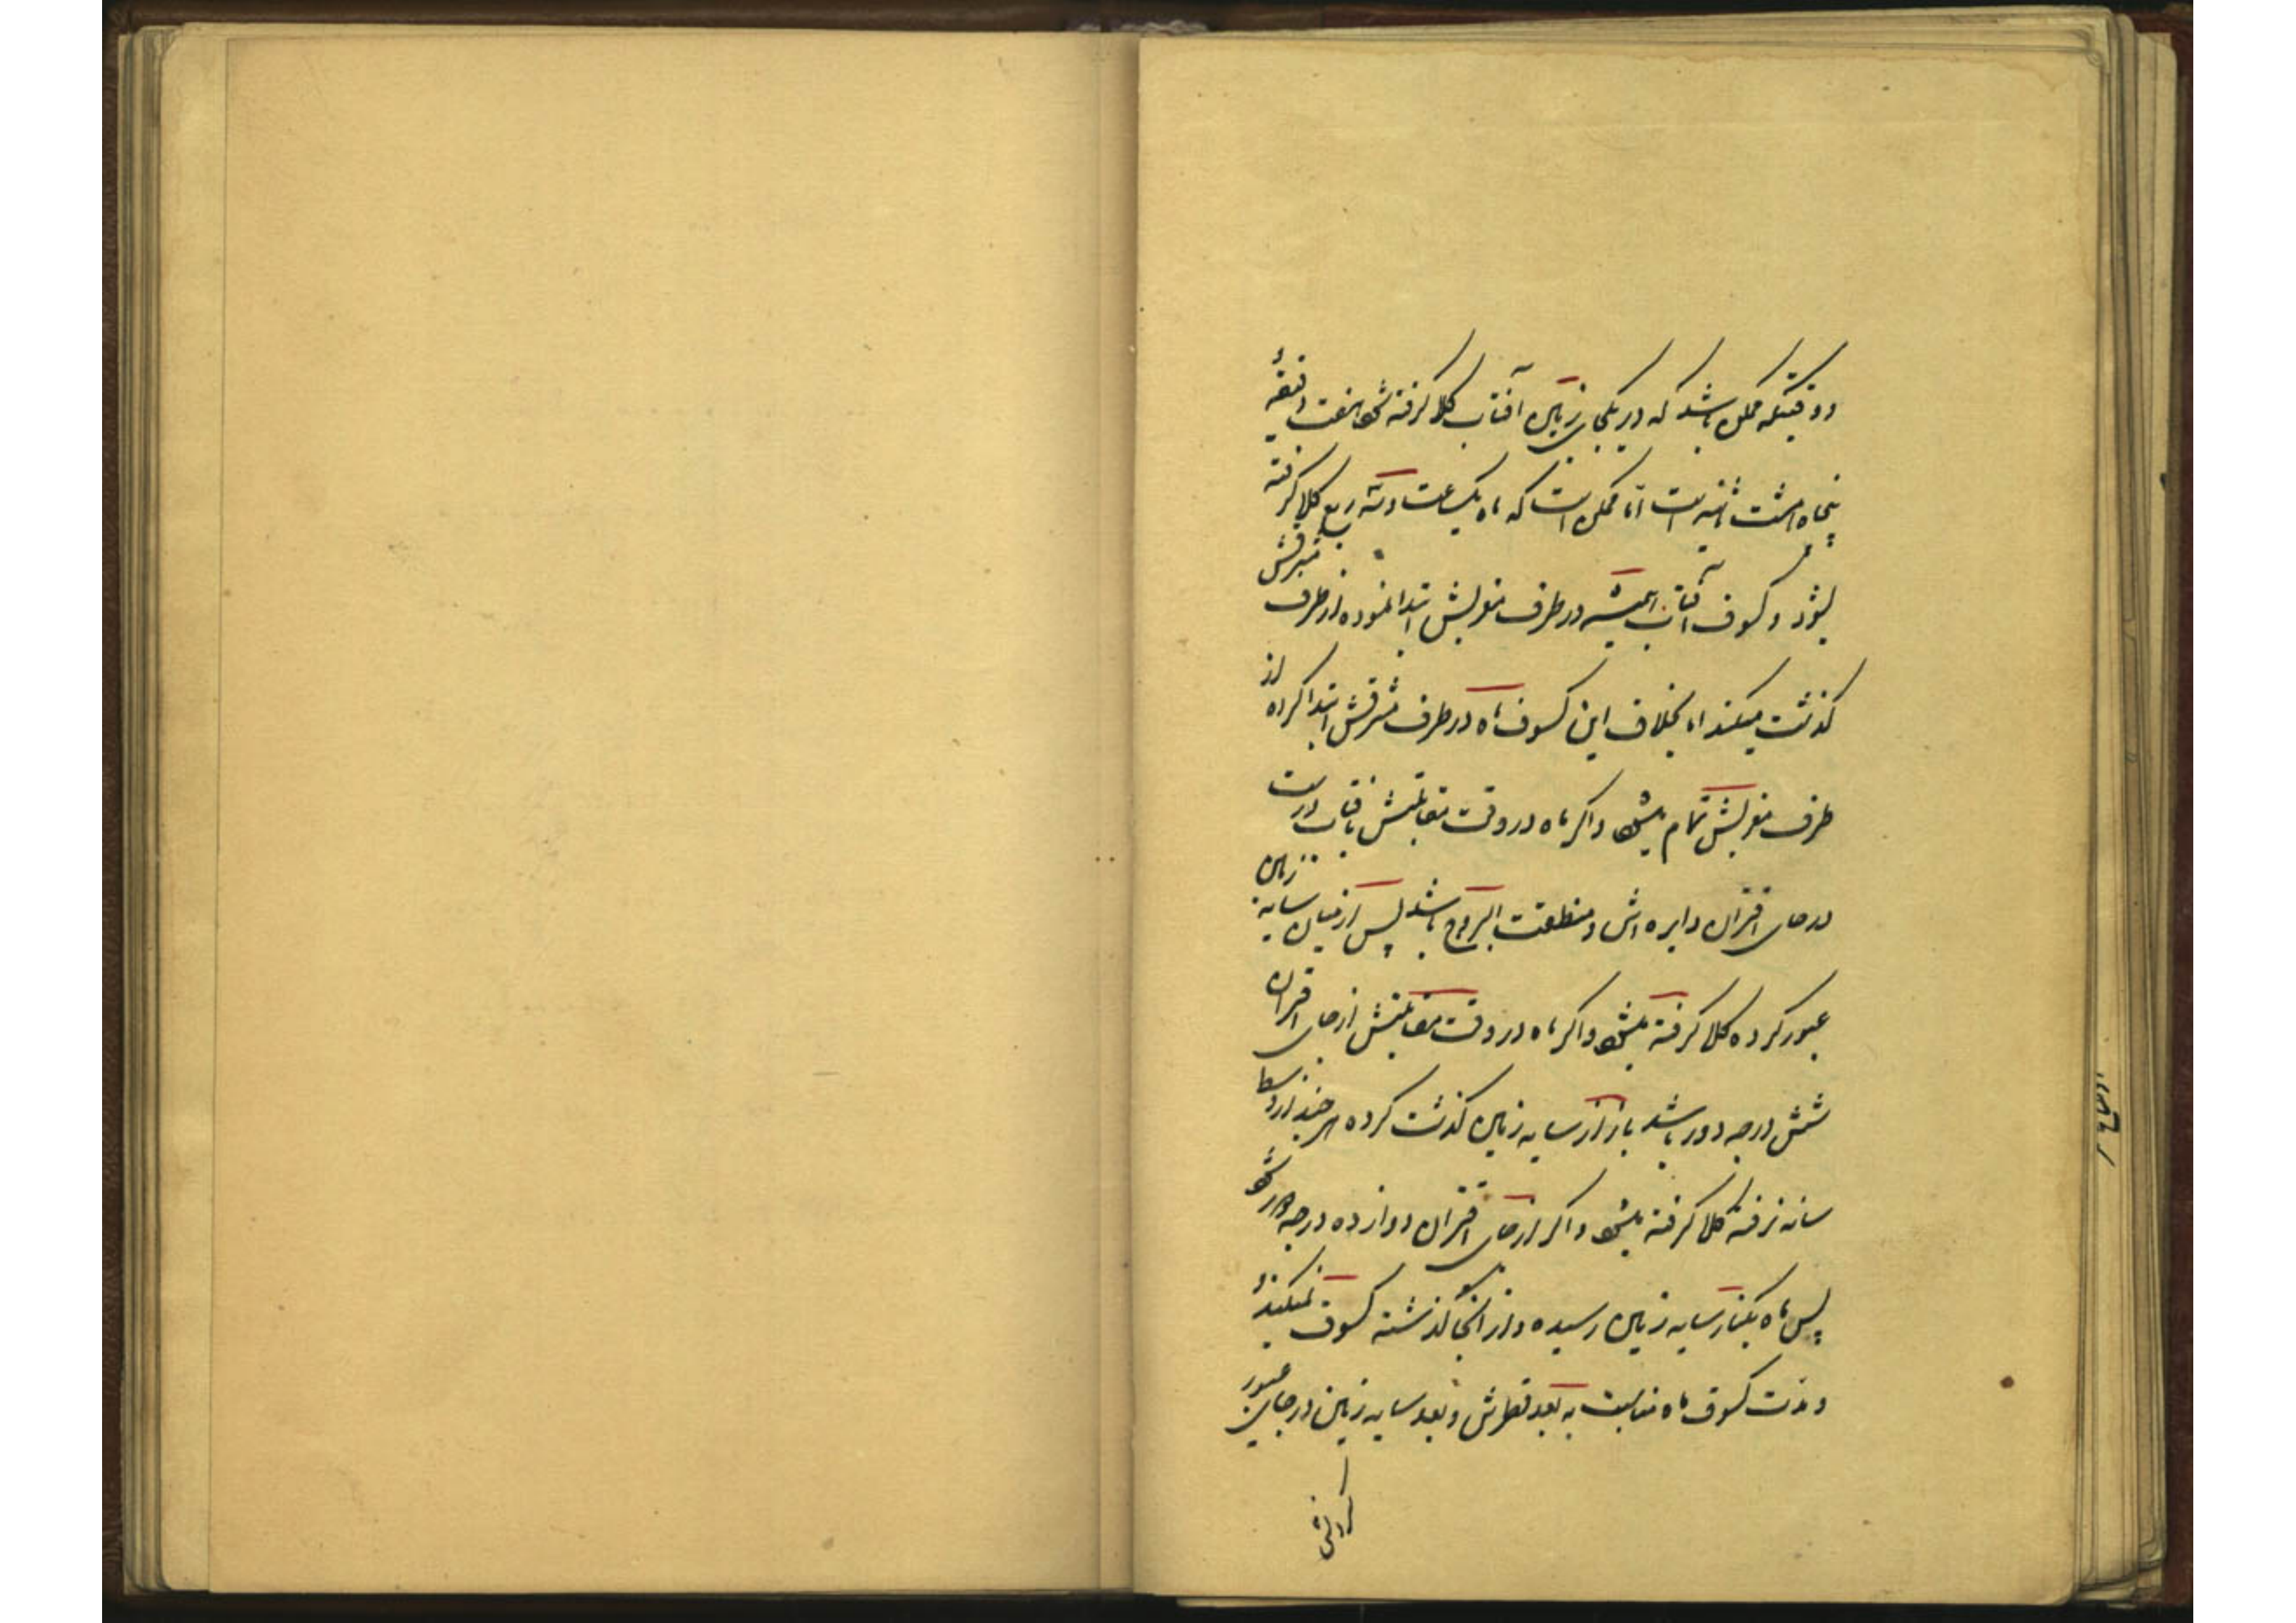 دوقتیکه ممکن باشد که در یکجای زمین آفتاب کلا گرفته شود هفت دقیقهٔ
پنجاه هشت ثانیه است اما ممکن است که ماه یکساعت وسه ربع کلا گرفته
بشود و کسوف آفتاب همیشه در طرف مغربیش ابتدا نموده از طرف مشرقش
گذشت میکند اما بخلاف این کسوف ماه در طرف مشرقش ابتدا کرده از
طرف مغربیش تمام میشود واگر ماه در وقت مقابلتش بافتاب درست
در جای اقتران دایره اش و منطقت البروج باشد پس از میان سایه زمین
عبور کرده کلا گرفته میشود واگر ماه در وقت مقابلتش از جای اقتران
شش درجه دور باشد باز از سایه زمین گذشت کرده هر چند از وسط
سایه نرفته کلا گرفته میشود واگر از جای اقتران دوازده درجه دور شود
پس ماه بکنار سایه زمین رسیده واز انجا گذشته کسوف نمیکند
و مدت کسوف ماه مناسبت به بعد قطرش و بعد سایه زمین در جای عبور
کردنش